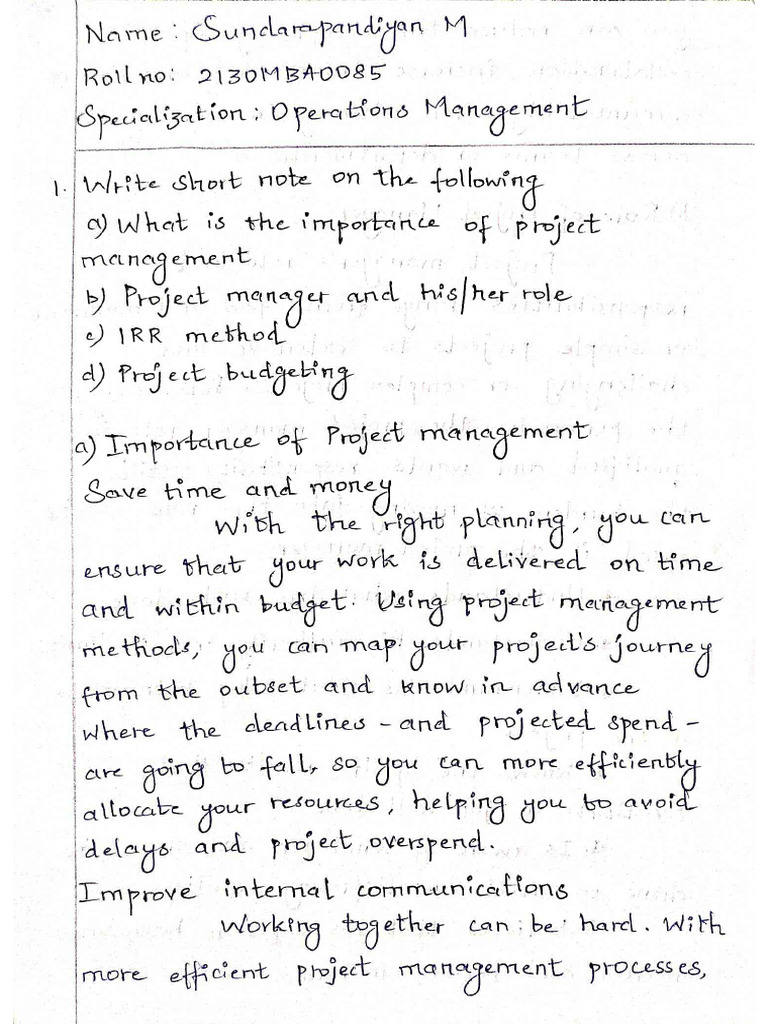 Name : Sundarapandiyan M
Roll no: 2130MBA0085
Specialization: Operations Management
1. Write short note on the following
a) What is the importance of project
management
b) Project manager and his/her role
c) IRR method
d) Project budgeting
a) Importance of Project management
Save time and money
With the right planning, you can
ensure that your work is delivered on time
and within budget. Using project management
methods, you can map your project's journey
from the outset and know in advance
where the deadlines - and projected spend -
are going to fall, so you can more efficiently
allocate your resources, helping you to avoid
delays and project overspend.
Improve internal communications
Working together can be hard. With
more efficient project management processes,